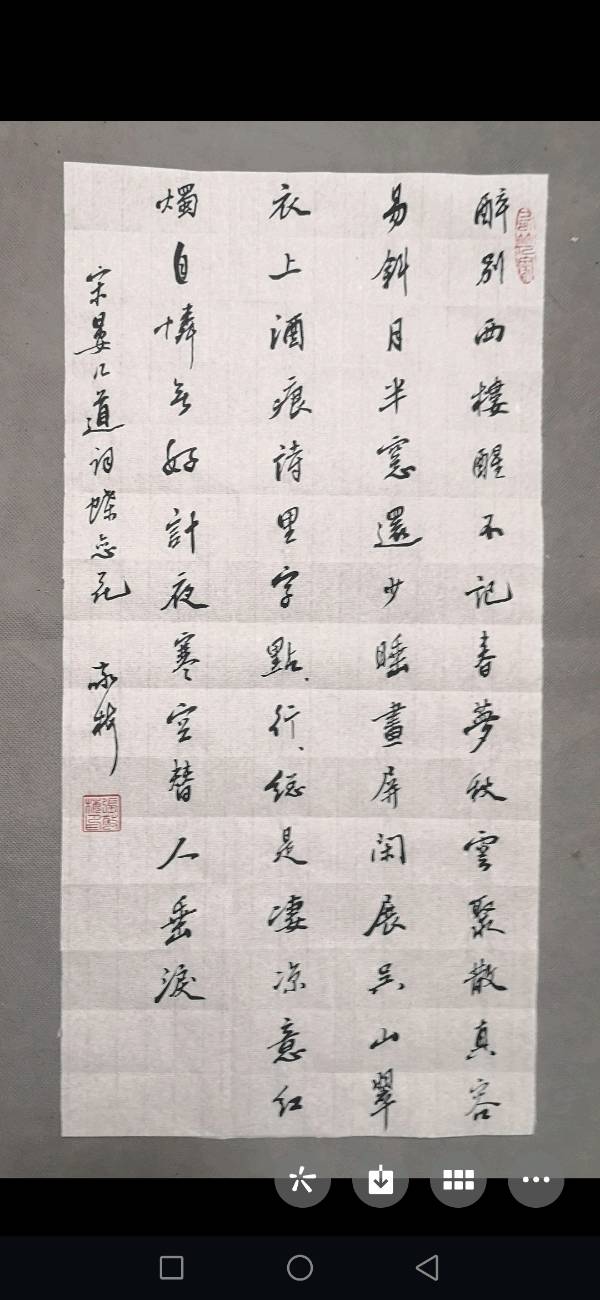 醉别西樓醒不記春夢秋雲聚散真容
易斜月半窓還少睡畫屏閑展吴山翠
衣上酒痕詩里字點、行、総是凄凉意紅
燭自憐無好計夜寒空替人垂淚
宋晏几道词蝶恋花